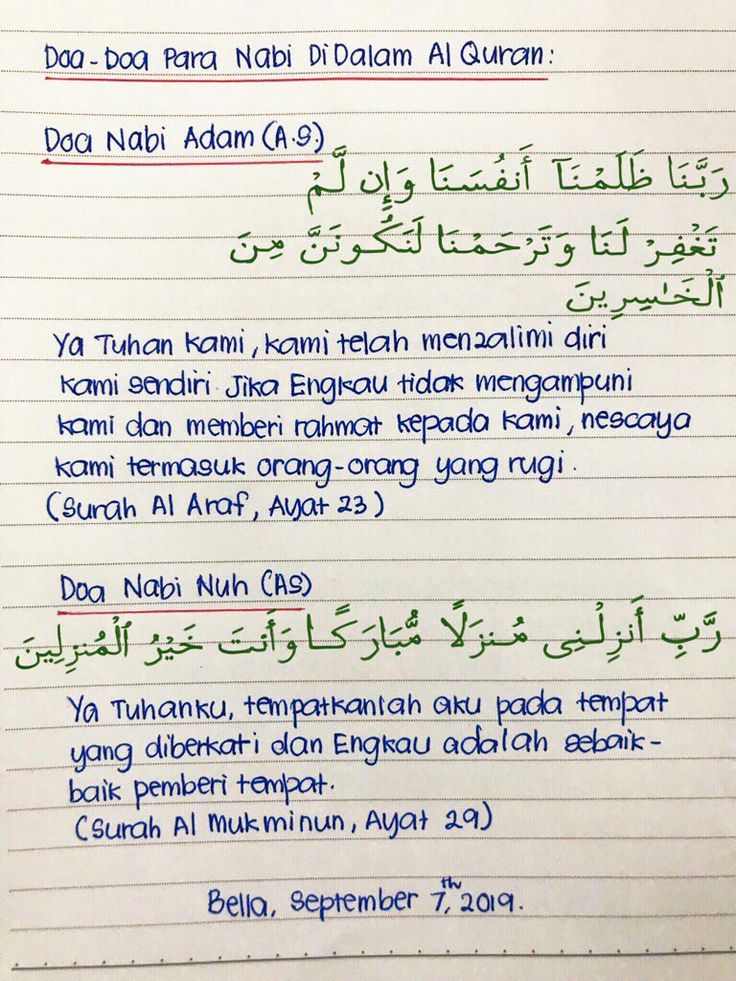 Doa-Doa Para Nabi DiDalam Al Quran:
Doa Nabi Adam (A.S.)
رَبَّنَا ظَلَمْنَآ أَنفُسَنَا وَإِن لَّمْ
تَغْفِرْ لَنَا وَتَرْحَمْنَا لَنَكُونَنَّ مِنَ
ٱلْخَـٰسِرِينَ
Ya Tuhan kami, kami telah menzalimi diri
kami sendiri. Jika Engkau tidak mengampuni
kami dan memberi rahmat kepada kami, nescaya
kami termasuk orang-orang yang rugi.
(Surah Al Araf, Ayat 23)
Doa Nabi Nuh (AS)
رَّبِّ أَنزِلْنِى مُنزَلًا مُّبَارَكًا وَأَنتَ خَيْرُ ٱلْمُنزِلِينَ
Ya Tuhanku, tempatkanlah aku pada tempat
yang diberkati dan Engkau adalah sebaik-
baik pemberi tempat.
(Surah Al Mukminun, Ayat 29)
Bella, September 7th, 2019.